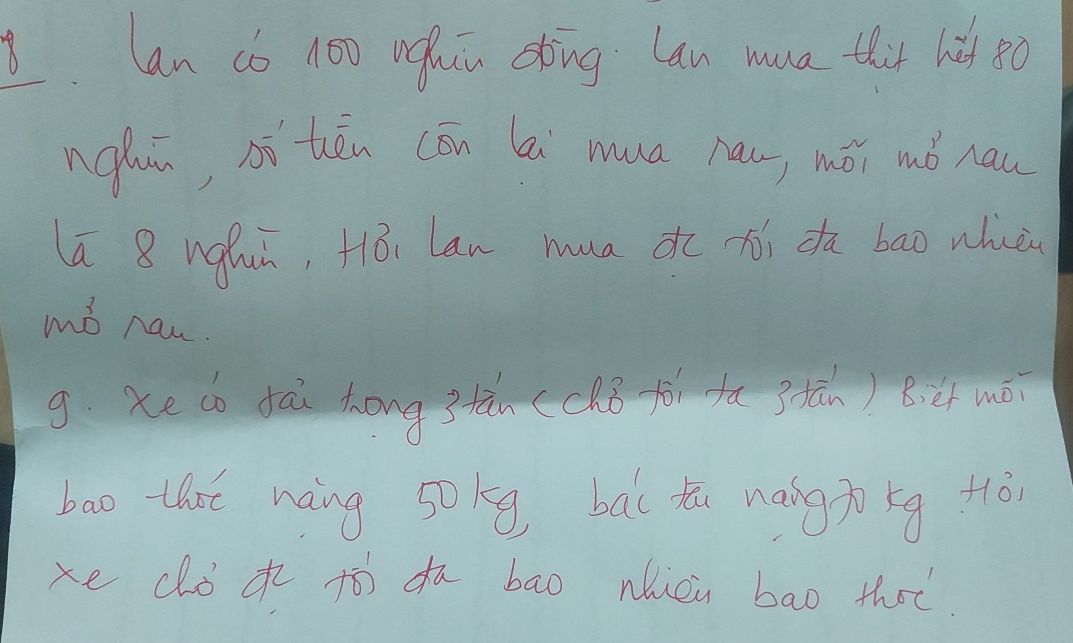 8. Lan có 100 nghìn đồng. Lan mua thịt hết 80
nghìn, số tiền còn lại mua rau, mỗi mớ rau
là 8 nghìn, Hỏi Lan mua đc tối đa bao nhiêu
mớ rau.
9. Xe có tải trọng 3 tấn (chở tối ta 3 tấn) Biết mỗi
bao thóc nặng 50 kg, bác tài nặng 70 kg Hỏi
xe chở đc tối đa bao nhiêu bao thóc.